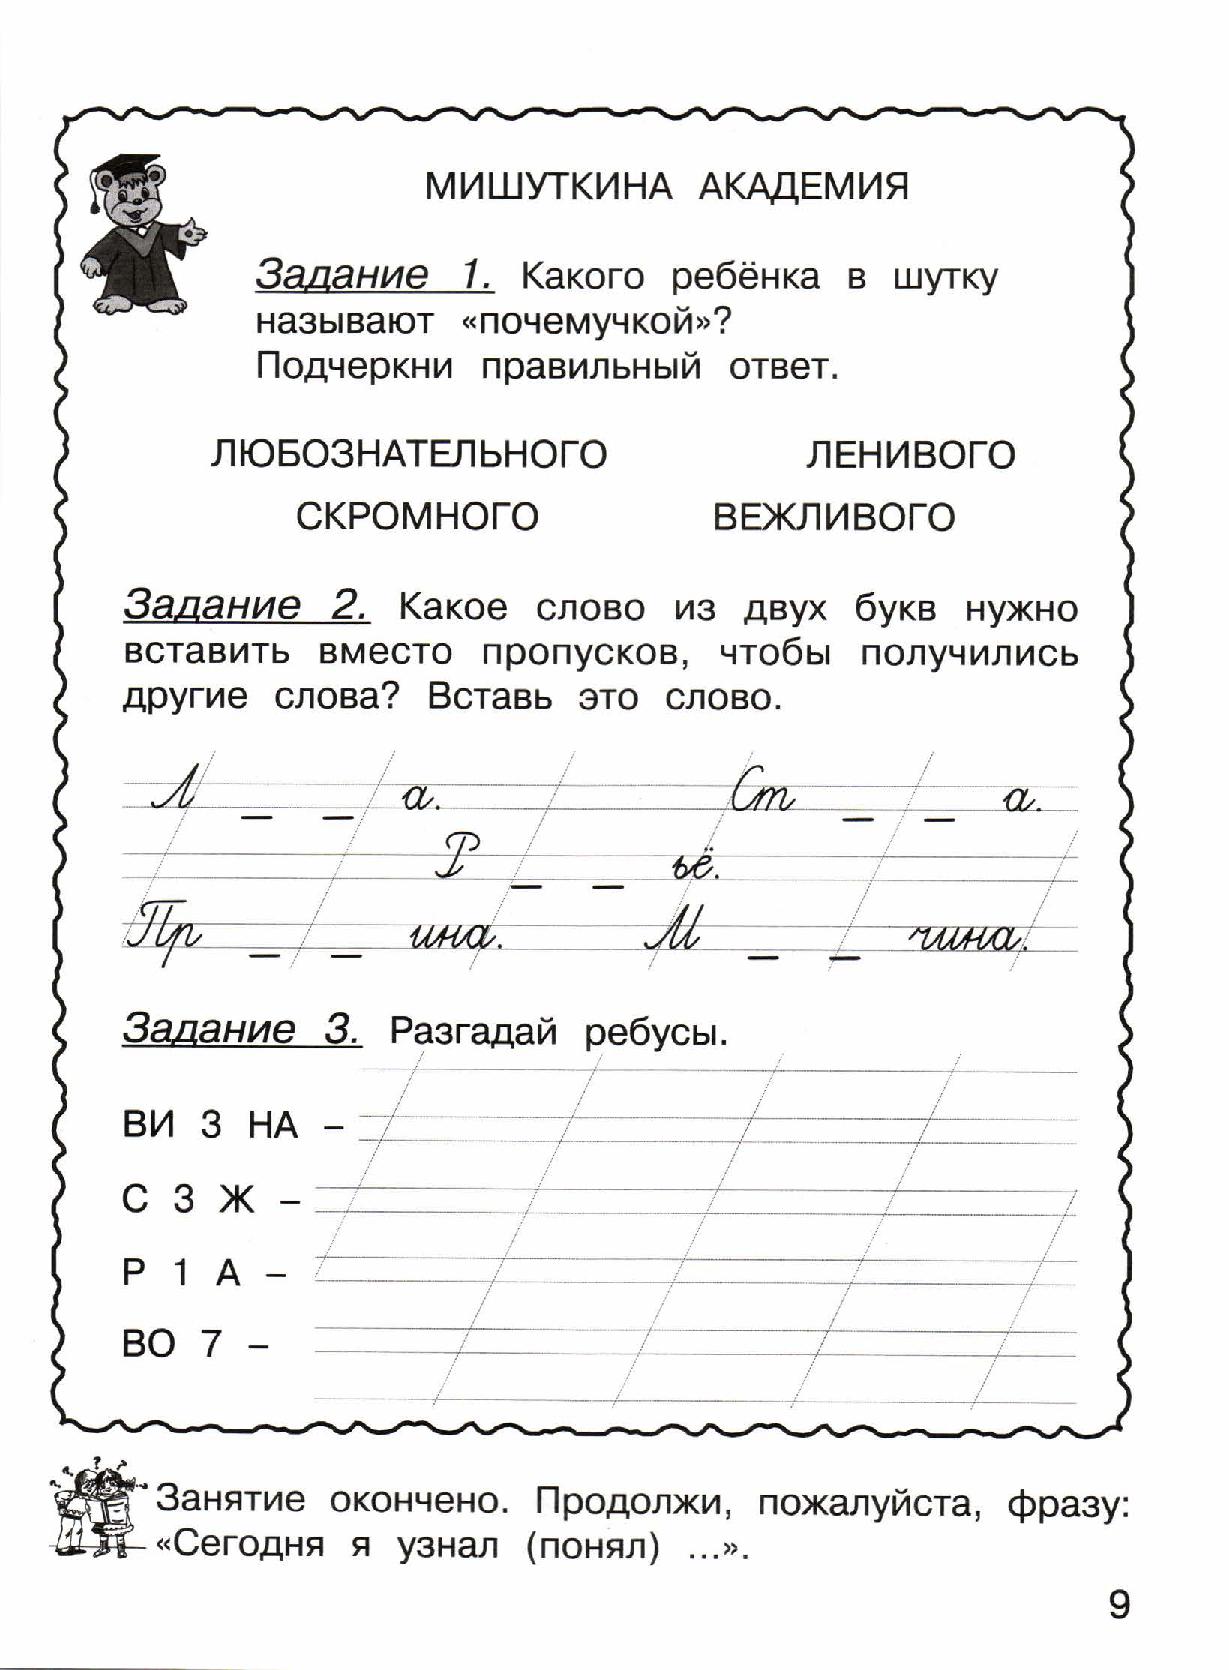 МИШУТКИНА АКАДЕМИЯ
Задание 1. Какого ребёнка в шутку
называют «почемучкой»?
Подчеркни правильный ответ.
ЛЮБОЗНАТЕЛЬНОГО ЛЕНИВОГО
СКРОМНОГО ВЕЖЛИВОГО
Задание 2. Какое слово из двух букв нужно
вставить вместо пропусков, чтобы получились
другие слова? Вставь это слово.
Л _ _ а. Ст _ _ а.
Р _ _ ьё.
Пр _ _ ина. М _ _ чина.
Задание 3. Разгадай ребусы.
ВИ 3 НА –
С 3 Ж –
Р 1 А –
ВО 7 –
Занятие окончено. Продолжи, пожалуйста, фразу:
«Сегодня я узнал (понял) ...».
9